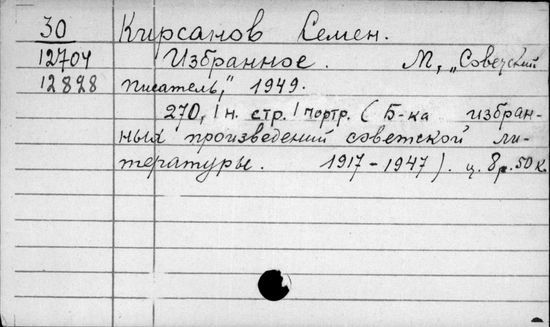 30 Кирсанов Семен.
12704 Избранное. М, „Советский
12828 писатель," 1949.
270, 1 н. стр. 1 портр. (Б-ка избран-
ных произведений советской ли-
тературы. 1917-1947). ц. 8р. 50к.